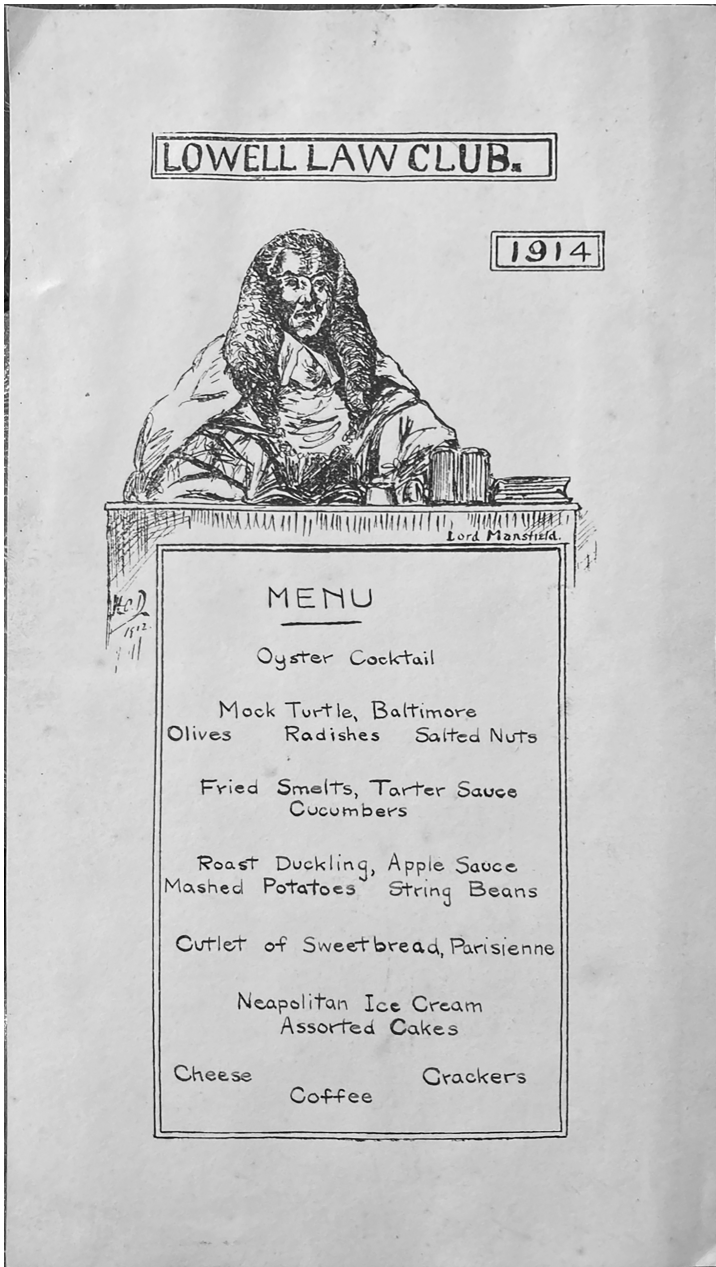 LOWELL LAW CLUB.
1914
Lord Mansfield.
H.C.D.
1912.
MENU
Oyster Cocktail
Mock Turtle, Baltimore
Olives Radishes Salted Nuts
Fried Smelts, Tarter Sauce
Cucumbers
Roast Duckling, Apple Sauce
Mashed Potatoes String Beans
Cutlet of Sweetbread, Parisienne
Neapolitan Ice Cream
Assorted Cakes
Cheese Crackers
Coffee